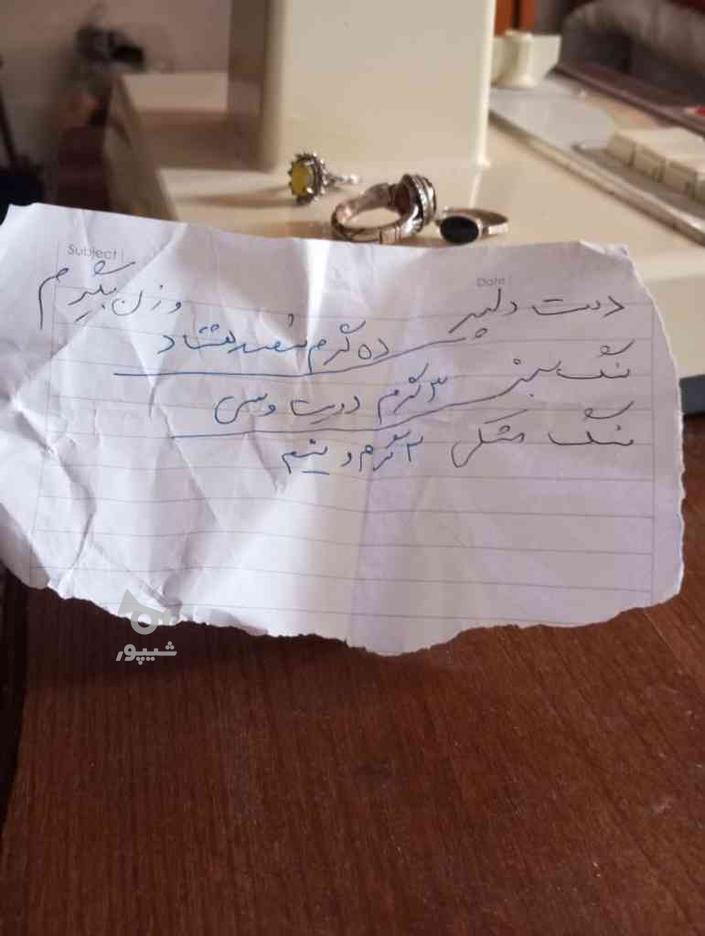 Subject
Date
دست دلبر وزن بگیرم
ده گرم نهصد هشتاد
نگ سبز ۳ گرم دویست و سی
نگ مشکی ۲ گرم و نیم
شیپور